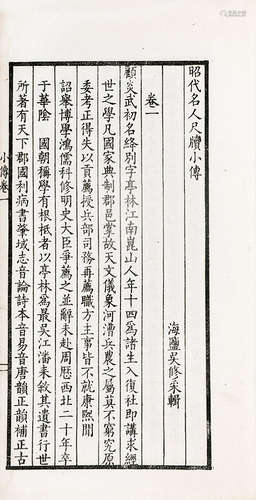 昭代名人尺牘小傳
海鹽吳修采輯
卷一
顧炎武初名絳别字亭林江南崑山人年十四爲諸生入復社即講求經
世之學凡國家典制郡邑掌故天文儀象河漕兵農之屬莫不窮究原
委考正得失以貢薦授兵部司務再薦職方主事皆不就康熙閒
詔舉博學鴻儒科修明史大臣爭薦之並辭未赴周歷西北二十年卒
于華陰 國朝稱學有根柢者以亭林爲最吳江潘耒敘其遺書行世
所著有天下郡國利病書肇域志音論詩本音易音唐韻正韻補正古
小傳卷一